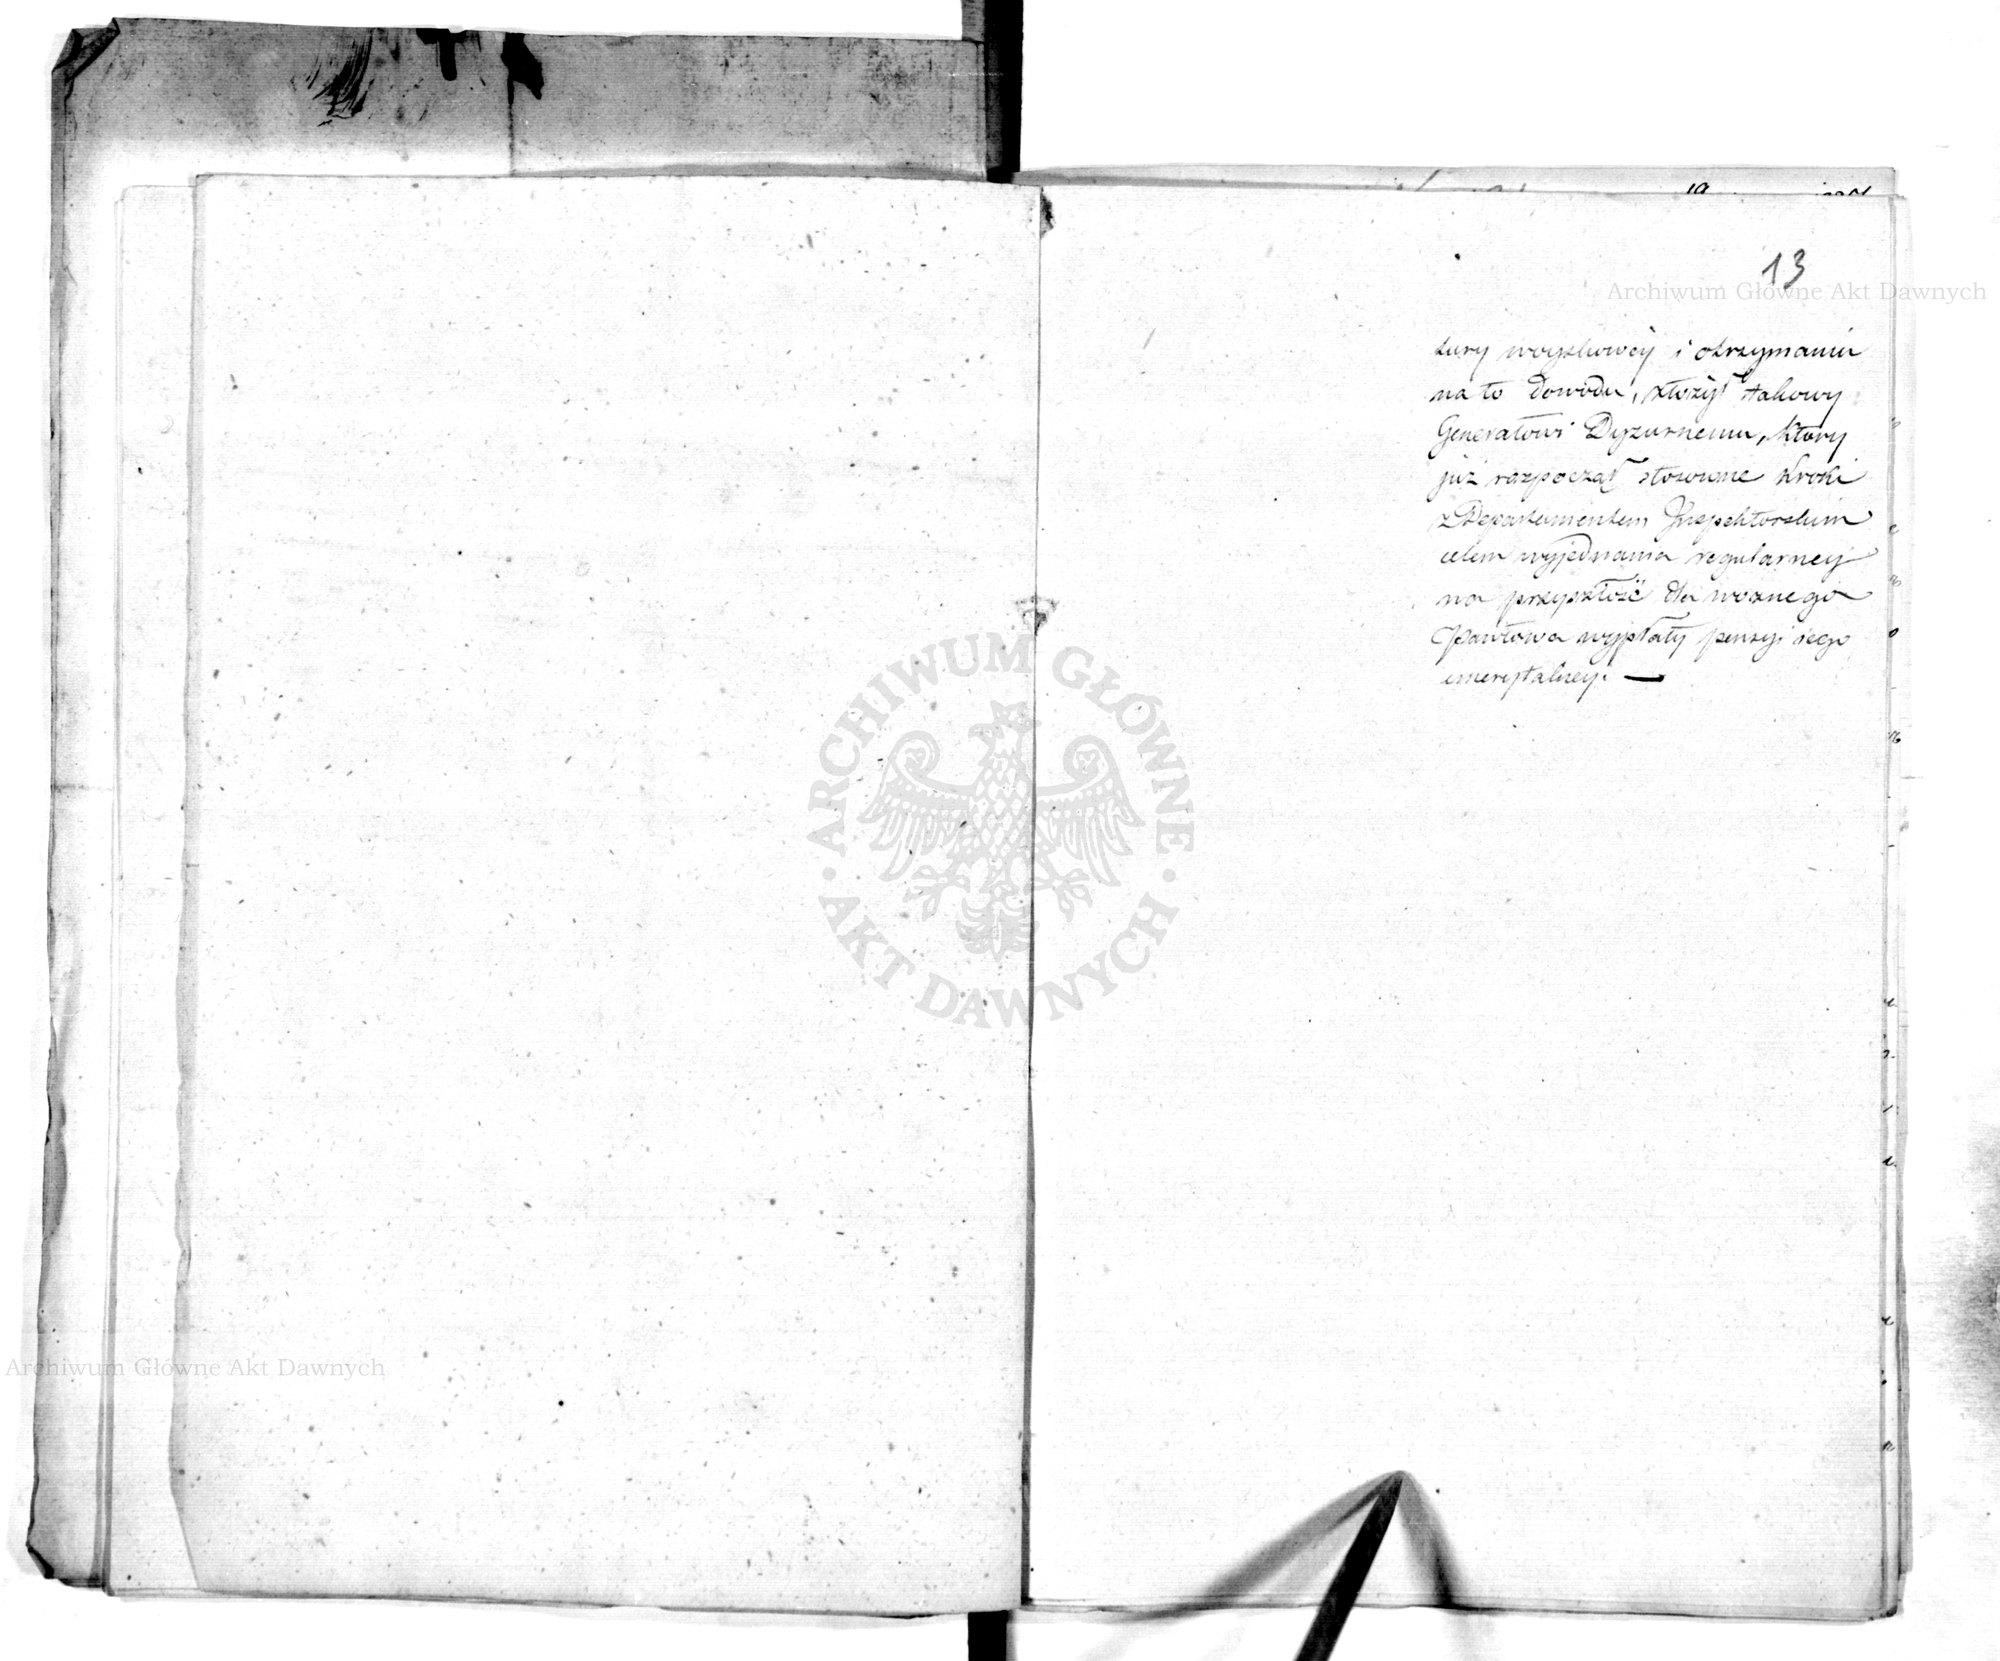 13
tury woyskowey i otrzymaniu
na to dowodu, złożył takowy
Generałowi Dyżurnemu, który
już rozpoczął stosowne kroki
z Departamentem Inspektorskim
celem wyjednania regularney
na przyszłość dla woznego
Pawłowa wypłaty pensyi iego
emerytalney. —
Archiwum Główne Akt Dawnych
ARCHIWUM GŁÓWNE
AKT DAWNYCH
Archiwum Główne Akt Dawnych